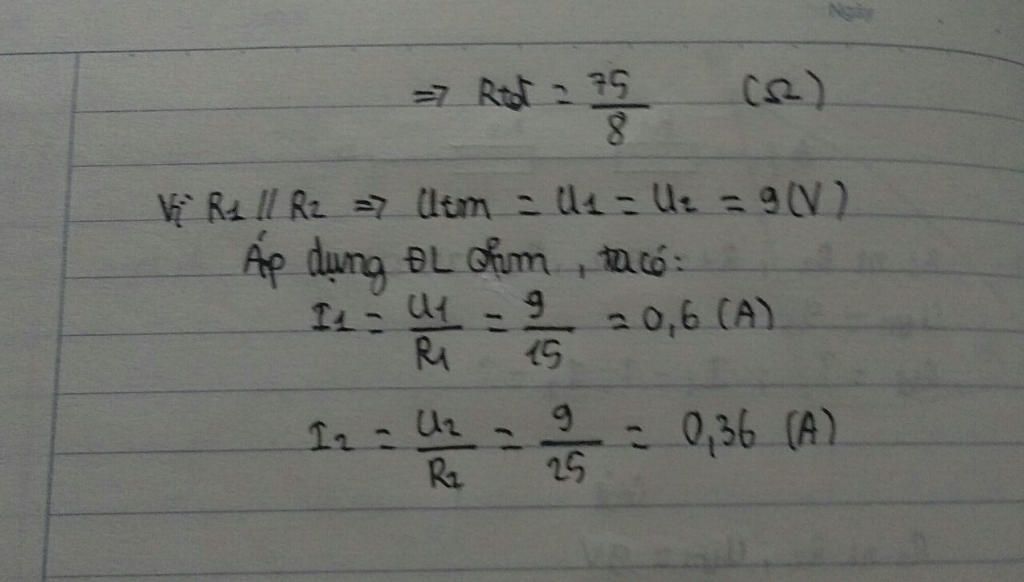 Ngày
=> Rtđ = 75/8 (Ω)
Vì R1 // R2 => Utm = U1 = U2 = 9(V)
Áp dụng ĐL Ohm, ta có:
I1 = U1/R1 = 9/15 = 0,6 (A)
I2 = U2/R2 = 9/25 = 0,36 (A)